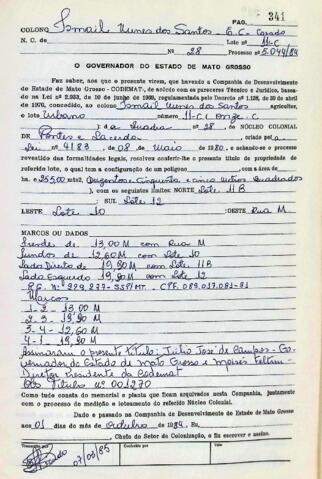 PAG. 341
COLONO Ismail Nunes dos Santos - E.C. Casado
N. C. de Lote nº 11-C
Nº 28 Processo nº 5.044/84
O GOVERNADOR DO ESTADO DE MATO GROSSO
Faz saber, aos que o presente virem, que havendo a Companhia de Desenvolvimento
do Estado de Mato Grosso - CODEMAT-, de acôrdo com os pareceres Técnico e Jurídico, basea-
da na Lei nº 2.933, de 10 de junho de 1969, regulamentada pelo Decreto nº 1.128, de 20 de abril
de 1970, concedido, ao colono Ismail Nunes dos Santos agricultor,
o lote Urbano número 11-C (onze C
) da Quadra nº 28, do NÚCLEO COLONIAL
DE Pontes e Lacerda
Lei nº 4183, de 08, de Maio de 1980, e achando-se o processo
revestido das formalidades legais, resolveu conferir-lhe o presente título de propriedade do
referido lote, o qual tem a configuração de um polígono com área
de ha. 255,00 mts2, Duzentos e Cinquenta e cinco Metros Quadrados
), com os seguintes limites: NORTE Lote 11B
; SUL Lote 12
LESTE Lote 10 ; OESTE Rua M
MARCOS OU DADOS
Frentes de 13,00 M com Rua M
Fundos de 12,60 M com Lote 10
Lado Direito de 19,90 M com Lote 11B
Lado Esquerdo 19,90 M com Lote 12
R.G. Nº 229.237-SSP/MT. - CPF. 089.017.081-81
Marcos
1-2 - 13,00 M
2-3 - 19,90 M
3-4 - 12,60 M
4-1 - 19,90 M
Assinaram o presente título: Julio José de Campos - Go-
vernador do Estado de Mato Grosso e Moisés Feltrin -
Diretor Presidente da Codemat
Obs Título nº 001270
Como tudo consta do memorial e planta que ficam arquivados nesta Companhia, juntamente
com o processo de medição e loteamento do referido Núcleo Colonial.
Dado e passado na Companhia de Desenvolvimento do Estado de Mato Grosso
aos 01 dias do mês de outubro de 1984, Eu,
, Chefe do Setor de Colonização, o fiz escrever e assino.
07/03/85